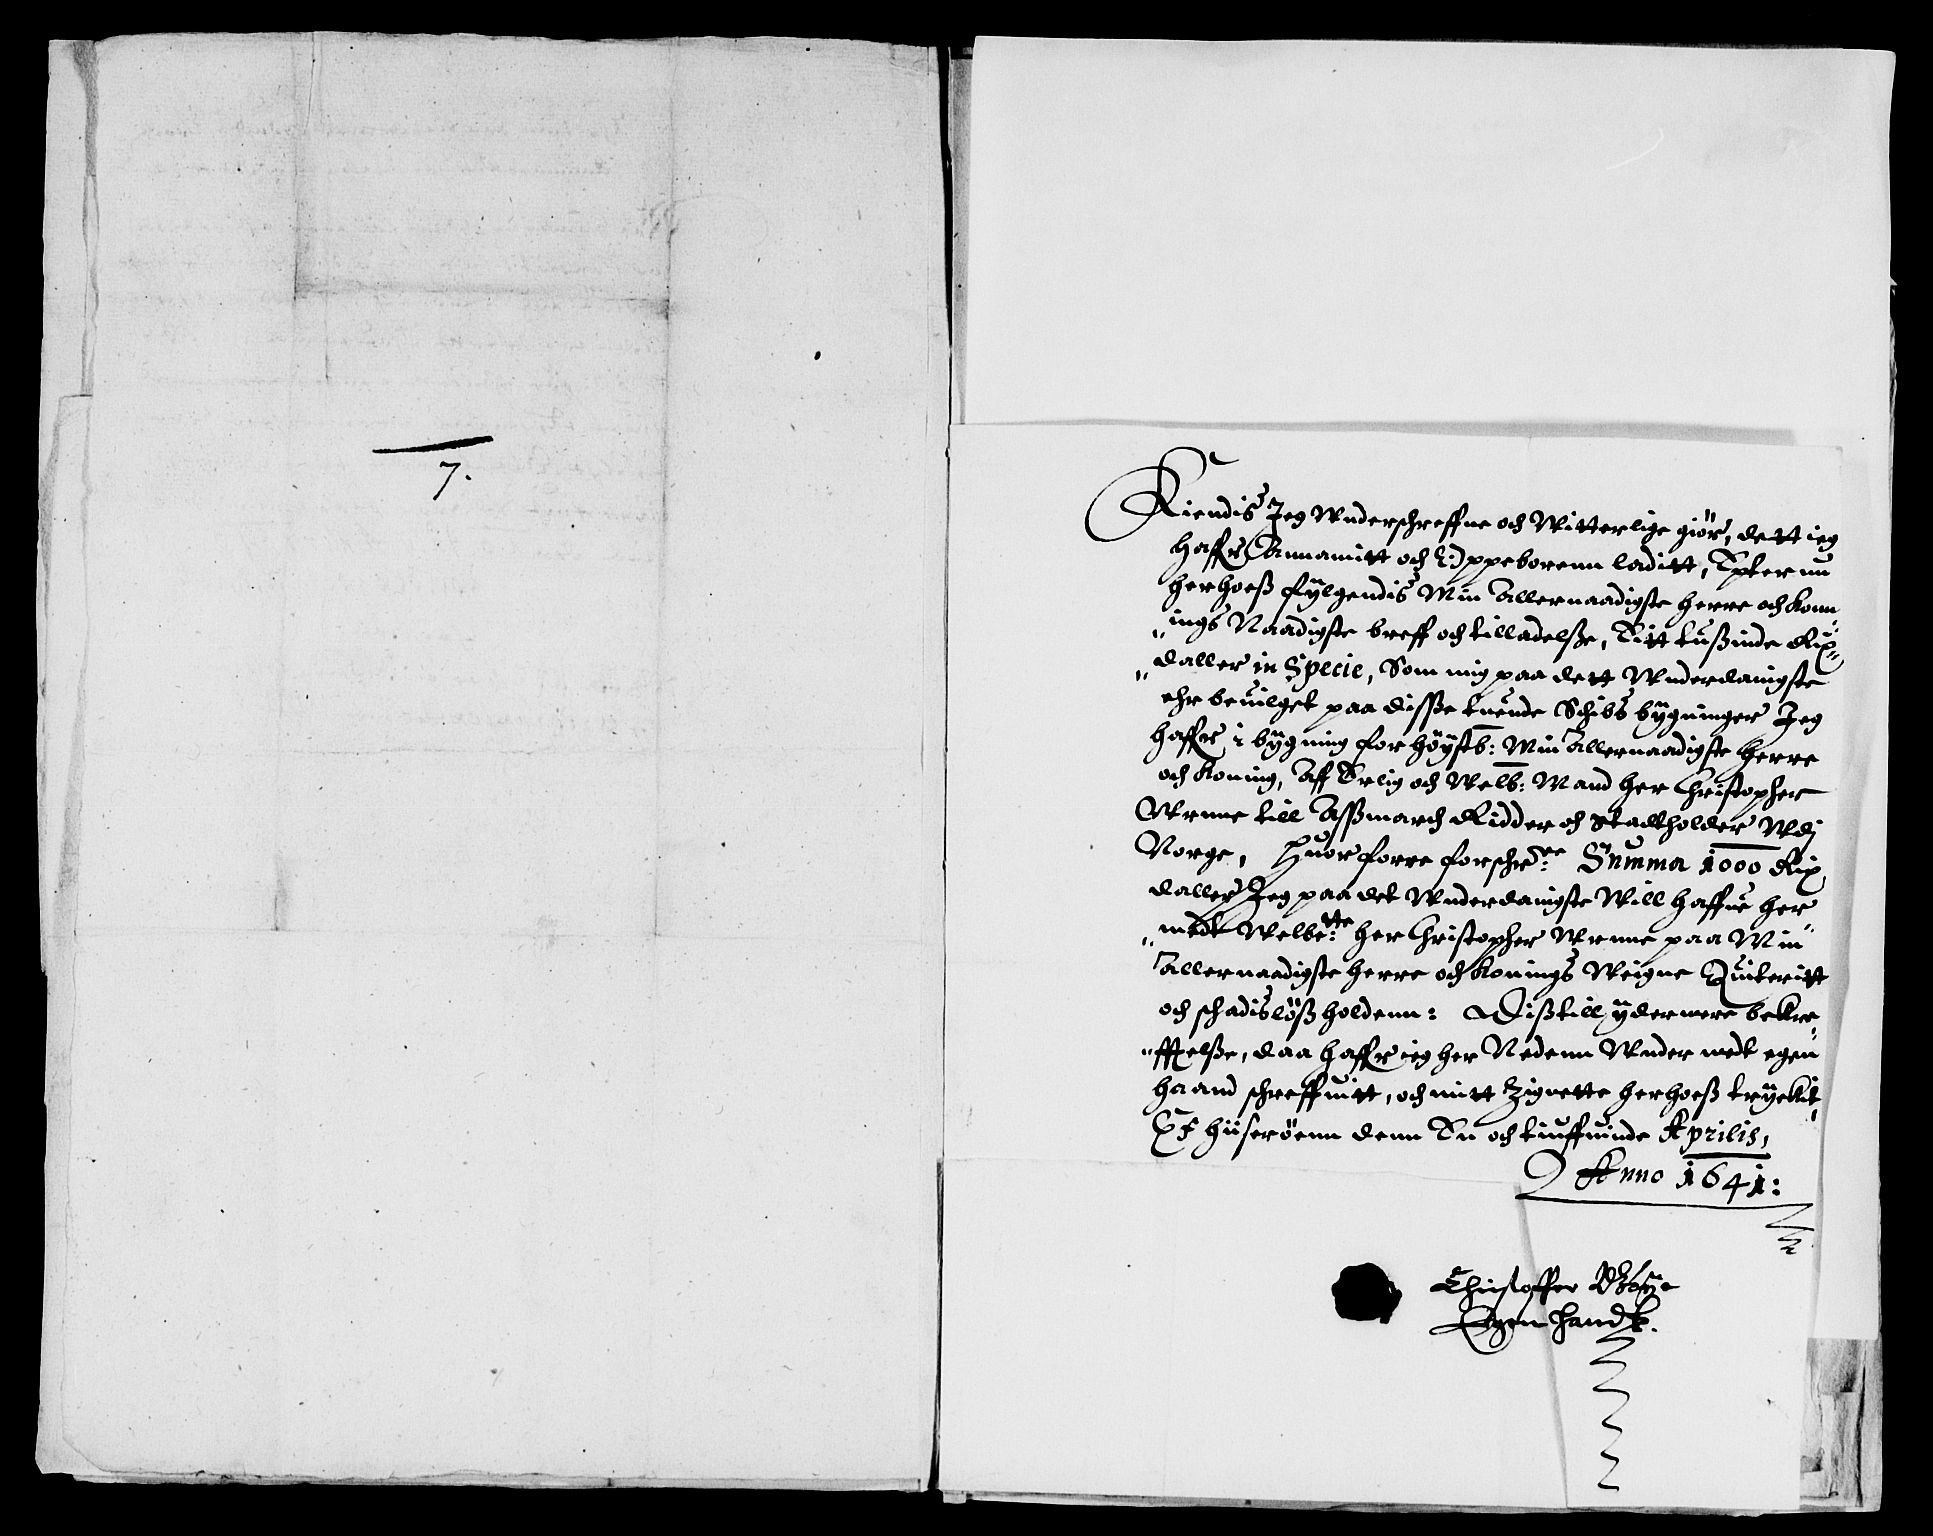 7.
Kiendis Jeg Wnderschreffne och Witterlige giör, dett ieg
haffr Annamitt och Oppeborenn laditt, Epter nu
herhoeß fylgendis Min Allernaadigste herre och Konn
ings Naadigste breff och tilladelße, Sitt tußinde Rix
daller in Specie, Som mig paa dett Wnderdanigste
ehr beuilget paa disße tuende Schibs bygninger Jeg
haffr i bygning for höystb: Min Allernaadigste herre
och Koning, Aff Erlig och Welb: Mand her Christopher
Wrnne till Aßmarch Ridder och Stadtholder Wdj
Norge, Huorforre forschr:ne Summa 1000 Rix
daller Jeg paa det Wnderdanigste Will haffue her
medt Welbe:tte her Christopher Wrnne paa Min
Allernaadigste herre och Konings Weigne Quiteritt
och schadislöß holdenn: Dißtill ydermere bekre
fftelße, daa haffr ieg her Nedenn Wnder medt egen
haand schreffuitt, och mitt Zignette herhoeß tryckit
Ex hiiseröenn denn En och tiuffuinde Aprilis,
Anno 1641:
Christoffer Göye
Egen handt.